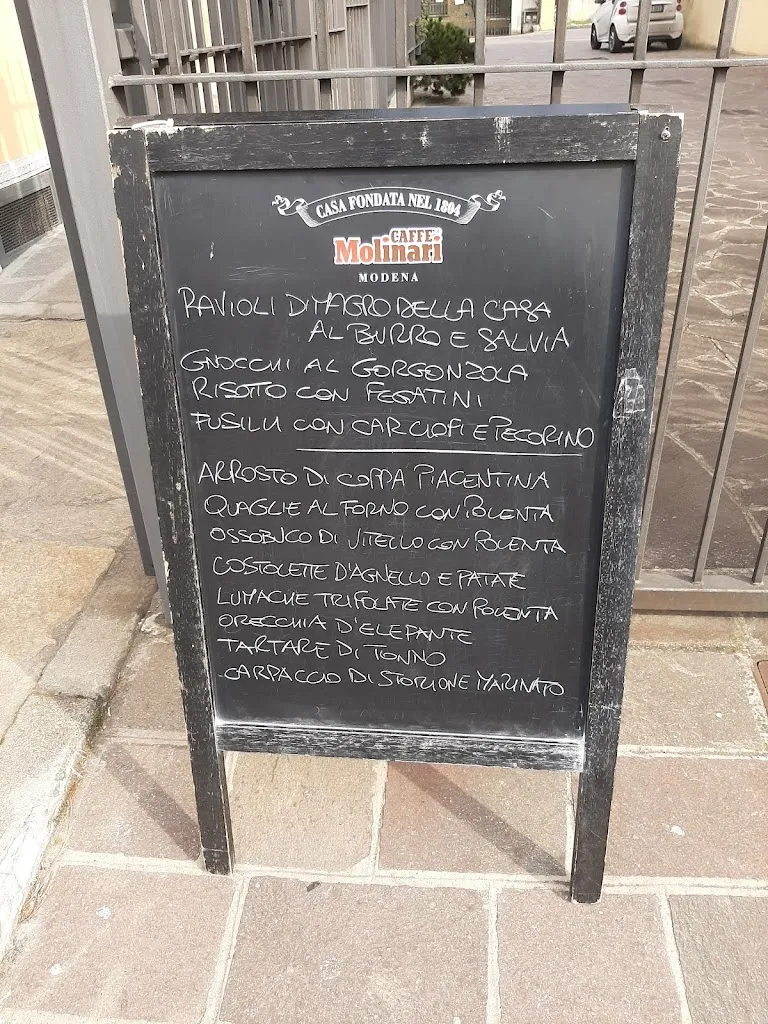 CASA FONDATA NEL 1804
CAFFE'
Molinari
MODENA
RAVIOLI DI MAGRO DELLA CASA
AL BURRO E SALVIA
GNOCCHI AL GORGONZOLA
RISOTTO CON FEGATINI
FUSILLI CON CARCIOFI E PECORINO
ARROSTO DI COPPA PIACENTINA
QUAGLIE AL FORNO CON POLENTA
OSSOBUCO DI VITELLO CON POLENTA
COSTOLETTE D'AGNELLO E PATATE
LUMACHE TRIFOLATE CON POLENTA
ORECCHIA D'ELEFANTE
TARTARE DI TONNO
CARPACCIO DI STORIONE MARINATO